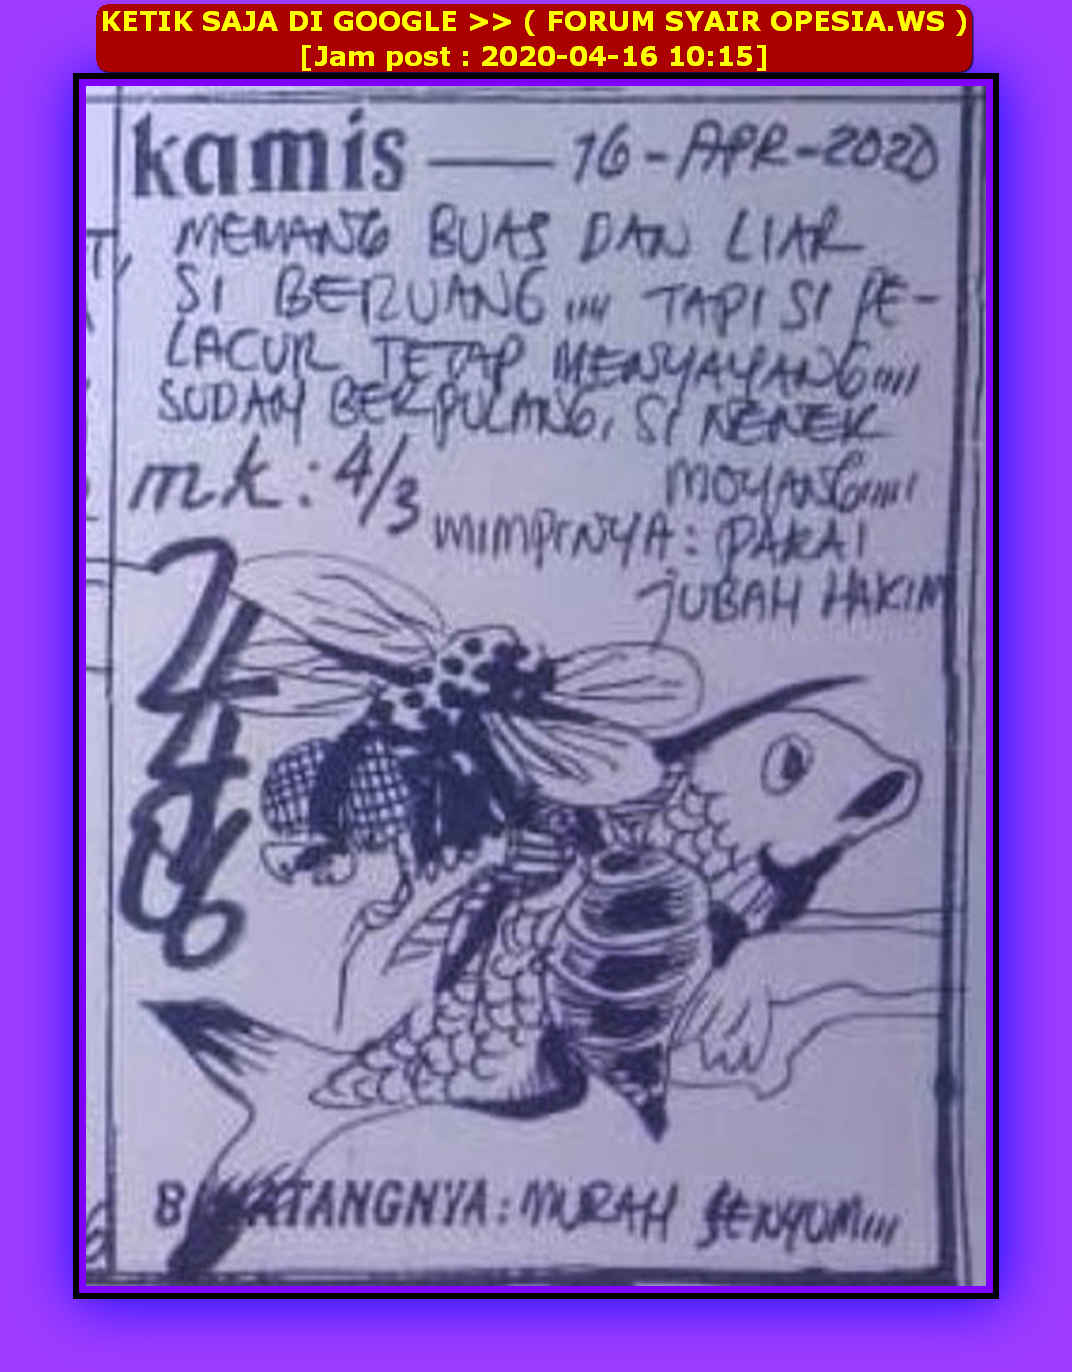 KETIK SAJA DI GOOGLE >> ( FORUM SYAIR OPESIA.WS )
[Jam post : 2020-04-16 10:15]
kamis — 16-APR-2020
MEMANG BUAS DAN LIAR
SI BERUANG,,,, TAPI SI PE-
LACUR TETAP MENYAYANG,,,,
SUDAH BERPULANG, SI NENEK
MOYANG,,,,,
mk: 4/3
MIMPINYA: PAKAI
JUBAH HAKIM
BINATANGNYA: MURAH SENYUM,,,